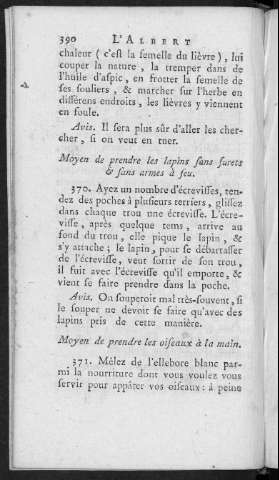 390 L'ALBERT
chaleur (c'est la femelle du lièvre), lui
couper la nature, la tremper dans de
l'huile d'aspic, en frotter la semelle de
ses souliers, & marcher sur l'herbe en
différens endroits, les lièvres y viennent
en foule.
Avis. Il sera plus sûr d'aller les cher-
cher, si on veut en tuer.
Moyen de prendre les lapins sans furets
& sans armes à feu.
370. Ayez un nombre d'écrevisses, ten-
dez des poches à plusieurs terriers, glissez
dans chaque trou une écrevisse. L'écre-
visse, après quelque tems, arrive au
fond du trou, elle pique le lapin, &
s'y attache; le lapin, pour se débarrasser
de l'écrevisse, veut sortir de son trou,
il fuit avec l'écrevisse qu'il emporte, &
vient se faire prendre dans la poche.
Avis. On souperoit mal très-souvent, si
le souper ne devoit se faire qu'avec des
lapins pris de cette manière.
Moyen de prendre les oiseaux à la main.
371. Mêlez de l'ellebore blanc par-
mi la nourriture dont vous voulez vous
servir pour appâter vos oiseaux: à peine